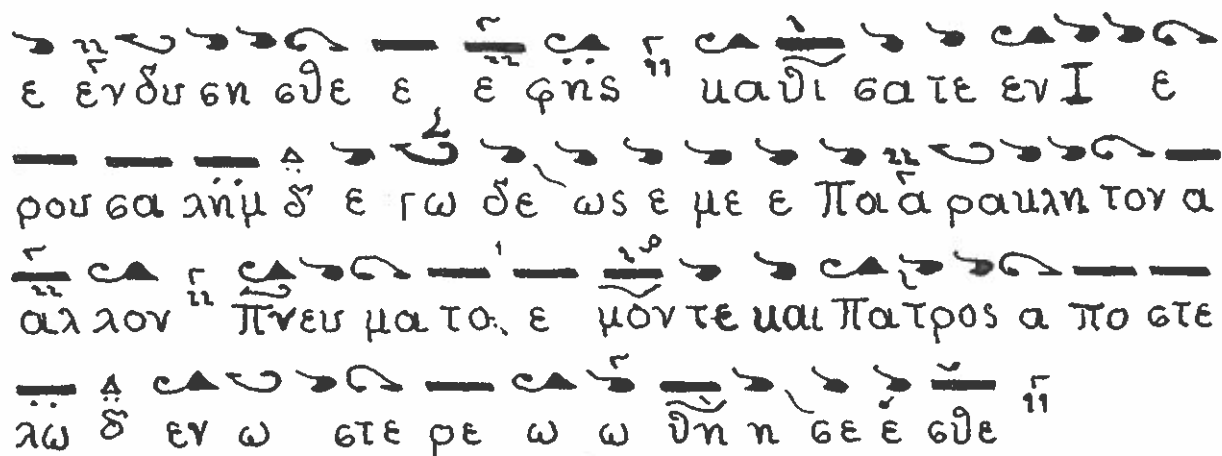 ε ἐνδυ ση σθε ε ε φης καθι σατε εν Ι ε
ρου σα λημ δ ε γω δε ως ε με ε Πα α ρακλη τον α
αλ λον πνευ μα το ε μόν τε και Πατρος α πο στε
λω δ εν ω στε ρε ω ω θη η σε ε σθε